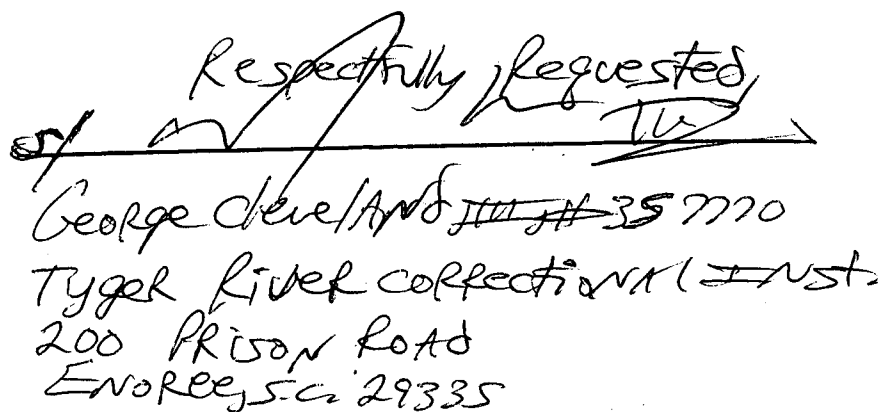 Respectfully Requested,
s/
George Cleveland III # 357770
Tyger River correctional Inst.
200 Prison Road
Enoree, S.C. 29335